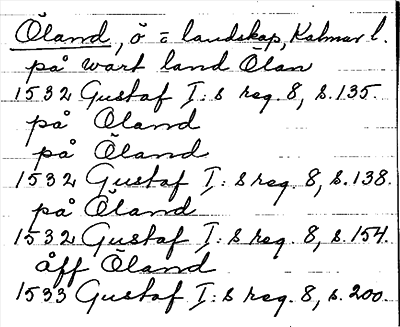 Öland, ö = landskap, Kalmar l.
på wart land Ölan
1532 Gustaf I:s reg. 8, s. 135.
på Öland
på Öland
1532 Gustaf I:s reg. 8, s. 138.
på Öland
1532 Gustaf I:s reg. 8, s. 154.
åff Öland
1533 Gustaf I:s reg. 8, s. 200.